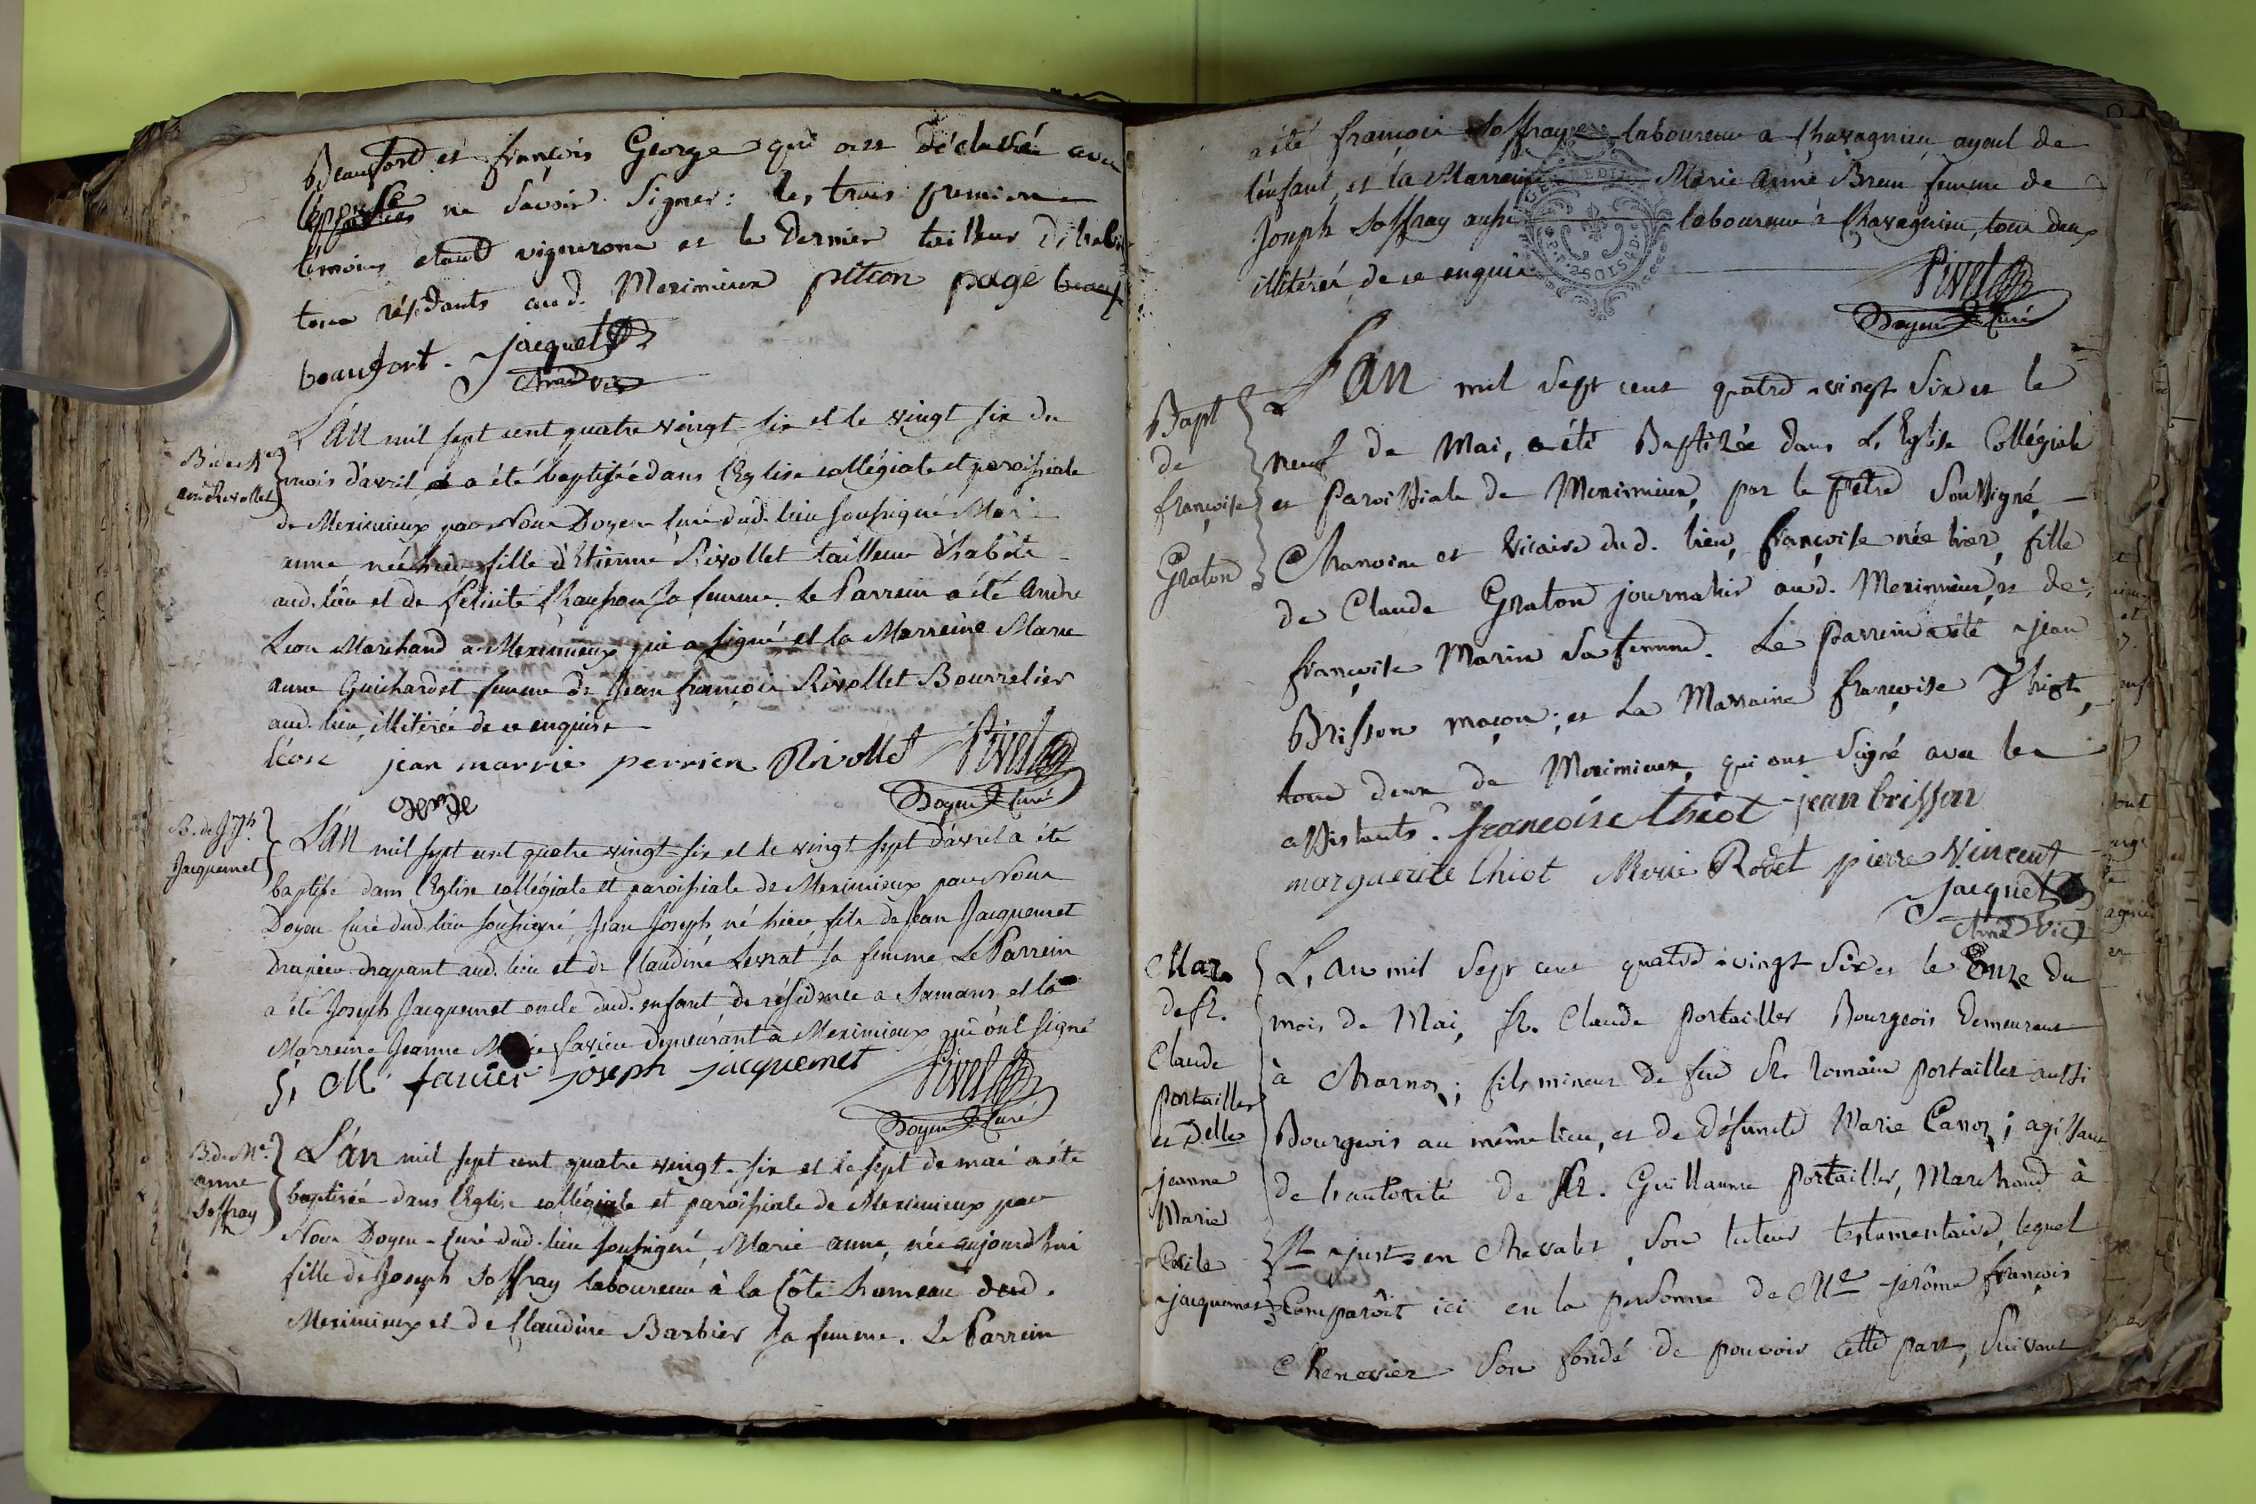 Beaufort et françois George qui ont déclaré avec
ne Savoir Signer: les trois premiers
témoins etant vignerons et le dernier tailleur d'habits
tous résidants aud. Meximieux pition page beauf
beaufort. Jacquet
Chne Vic
B. de Me
anne Rivollet
L'an mil sept cent quatre vingt six et le vingt six du
mois d'avril a été baptisée dans l'Eglise collégiale et paroissiale
de Meximieux par Nous Doyen Curé dud. lieu soussigné Marie
anne née hier fille d'Etienne Rivollet tailleur d'habits
aud. lieu et de félicité sa femme. Le Parrein a été andré
Leon Marchand a Meximieux qui a signé et la Marreine Marie
anne Guichardet femme de Jean françois Rivollet Bourrelier
aud. lieu, illitérée de ce enquise
léone jean marrie perrien Rivollet Pivet
Doyen Curé
B. de Jph
Jacquemet
L'an mil sept cent quatre vingt six et le vingt sept d'avril a été
baptisé dans l'Eglise collégiale et paroissiale de Meximieux par Nous
Doyen Curé dud. lieu soussigné, Jean Joseph né hier, fils de Jean Jacquemet
drapier drapant aud. lieu et de Claudine Levrat sa femme. Le Parrein
a été Joseph Jacquemet oncle dud. enfant de résidence a Samans et la
Marreine Jeanne Marie favier demeurant à Meximieux, qui ont signé
J. M. favier joseph jacquemet Pivet
Doyen Curé
B. de Me
anne
Soffray
L'an mil sept cent quatre vingt six et le sept de mai a été
baptisée dans l'Eglise collégiale et paroissiale de Meximieux par
Nous Doyen Curé dud. lieu soussigné, Marie anne, née aujourd'hui
fille de Joseph Soffray laboureur à la Côte hameau dud.
Meximieux et de Claudine Barbier sa femme. Le Parrein
a été françois Soffray laboureur a Chavagnieu, ayeul de
l'enfant, et la Marreine Marie anne Breu femme de
Joseph Soffray aussi laboureur à Chavagnieu, tous deux
illitérés de ce enquis
Pivet
Doyen Curé
Bapt
de
françoise
Graton
L'an mil Sept cent quatre vingt Six et le
neuf de Mai, a été Baptizée dans L'Eglise Collégiale
et Paroissiale de Meximieux, par le Pretre Soussigné
Chanoine et Vicaire dud. lieu, françoise née hier, fille
de Claude Graton journalier aud. Meximieux, et de
françoise Marin Sa femme. Le Parrein a été Jean
Brisson maçon; et La Marraine françoise Thiot,
tous deux de Meximieux, qui ont Signé avec les
assistants. francoise thiot jean brisson
marguerite thiot Rodet pierre Vincent
Jacquet
Chne Vic
Mar.
de Sr.
Claude
Portallier
et Delle
jeanne
Marie
Cécile
jacquemet
L'an mil Sept cent quatre vingt Six et le Onze du
mois de Mai, Sr. Claude Portallier Bourgeois Demeurant
à Charnoz; fils mineur de feu Sr. Romain Portallier aussi
Bourgeois au même lieu, et de Défunte Marie Canoz; agissant
de l'autorité de Sr. Guillaume Portallier, Marchand à
St. just en Chevalet, Son tuteur testamentaire, lequel
Comparoît ici en la personne de Me jerôme françois
Chenevier Son fondé de pouvoir cette part, Suivant